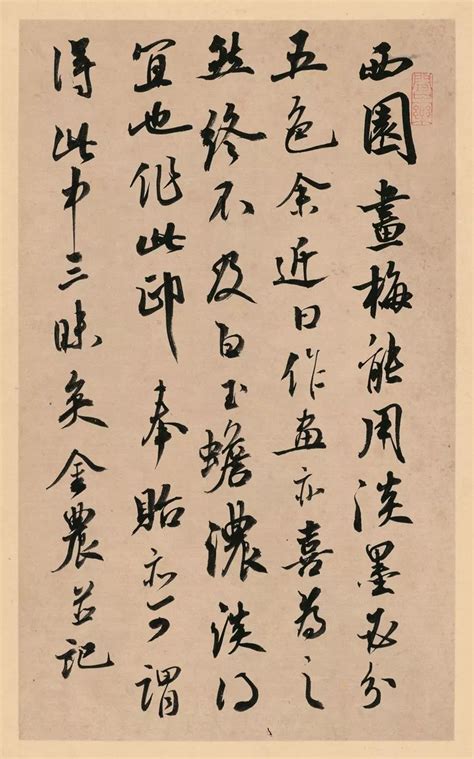 西園畫梅能用淡墨必分
五色余近日作畫亦喜為之
然終不及白玉蟾濃淡得
宜也作此即奉貽亦可謂
得此中三昧矣金農並記